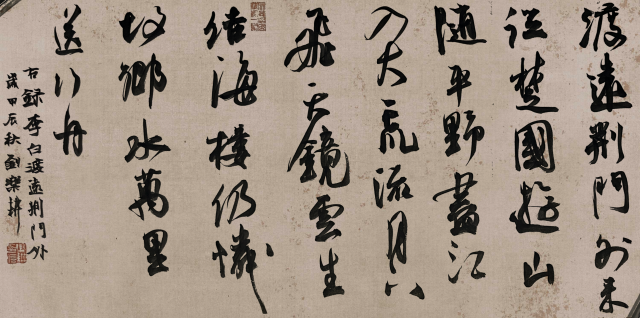 渡遠荆門外来
從楚國遊山
随平野盡江
入大荒流月下
飛天鏡雲生
结海樓仍憐
故鄉水萬里
送行舟
右録李白渡遠荆門外
歲甲辰秋劉樂耕